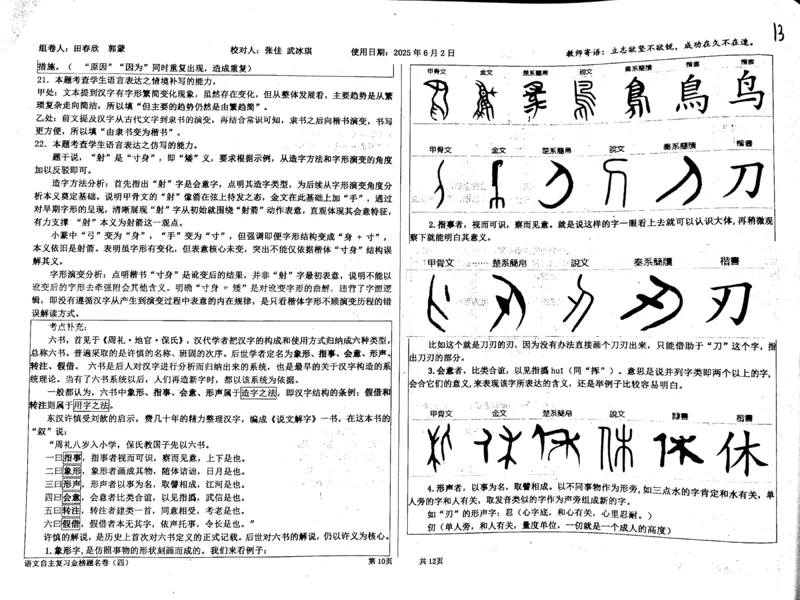 13
组卷人：田春欣 郭蒙 校对人：张佳 武冰琪 使用日期：2025年6月2日 教师寄语：立志欲坚不欲锐，成功在久不在速。
措施。（ “原因”“因为”同时重复出现，造成重复）
21．本题考查学生语言表达之情境补写的能力。
甲处：文本提到汉字有字形繁简变化现象，虽然存在变化，但从整体发展看，主要趋势是从繁
琐复杂走向简洁，所以填“但主要的趋势仍然是由繁趋简”。
乙处：前文提及汉字从古代文字到隶书的演变，再结合常识可知，隶书之后向楷书演变，书写
更方便，所以填“由隶书变为楷书”。
22．本题考查学生语言表达之仿写的能力。
题干说，“射”是“寸身”，即“矮”义，要求根据示例，从造字方法和字形演变的角度
加以反驳即可。
造字方法分析：首先指出“射”字是会意字，点明其造字类型，为后续从字形演变角度分
析本义奠定基础。说明甲骨文的“射”像箭在弦上待发之态，金文在此基础上加“手”，通过
对早期字形的呈现，清晰展现“射”字从初始就围绕“射箭”动作表意，直观体现其会意特征，
有力支撑 “射”本义为射箭这一观点。
小篆中“弓”变为“身”，“手”变为“寸”，但强调即便字形结构变成“身 + 寸”，
本义依旧是射箭。表明虽字形有变化，但表意核心未变，突出不能仅依据楷体“寸身”结构误
解其义。
字形演变分析：点明楷书“寸身”是讹变后的结果，并非“射”字最初表意，说明不能以
讹变后的字形去牵强附会其他含义。明确“寸身 = 矮”是对讹变字形的曲解，违背了字源逻
辑，即没有遵循汉字从产生到演变过程中表意的内在规律，是只看楷体字形不顾演变历程的错
误解读方式。
考点补充：
六书，首见于《周礼·地官·保氏》，汉代学者把汉字的构成和使用方式归纳成六种类型，
总称六书。普遍采取的是许慎的名称、班固的次序。后世学者定名为象形、指事、会意、形声、
转注、假借。 六书是后人对汉字进行分析而归纳出来的系统，也是最早的关于汉字构造的系
统理论。当有了六书系统以后，人们再造新字时，都以该系统为依据。
一般都认为，六书中象形、指事、会意、形声属于造字之法，即汉字结构的条例；假借和
转注则属于用字之法。
东汉许慎受刘歆的启示，费几十年的精力整理汉字，编成《说文解字》一书，在这本书的
“叙”说：
“周礼八岁入小学，保氏教国子先以六书。
一曰指事，指事者视而可识，察而见意，上下是也。
二曰象形，象形者画成其物，随体诘诎，日月是也。
三曰形声，形声者以事为名，取譬相成，江河是也。
四曰会意，会意者比类合谊，以见指撝，武信是也。
五曰转注，转注者建类一首，同意相受，考老是也。
六曰假借，假借者本无其字，依声托事，令长是也。”
许慎的解说，是历史上首次对六书定义的正式记载。后世对六书的解说，仍以许义为核心。
1.象形字，是仿照事物的形状刻画而成的。我们来看例子：
语文自主复习金榜题名卷（四） 第10页 共12页
甲骨文 金文 楚系簡帛 說文 秦系簡牘 隸書 楷書
鳥 鸟
甲骨文 金文 楚系簡帛 說文 秦系簡牘 楷書
刀
2.指事者，视而可识，察而见意。就是说这样的字一眼看上去就可以认识大体，再稍微观
察下就能明白其意义。
甲骨文 楚系簡帛 說文 秦系簡牘 楷書
刃
比如这个就是刀刃的刃，因为没有办法直接画个刀刃出来，只能借助于“刀”这个字，指
出刀刃的部分。
3.会意者，比类合谊，以见指撝 huī（同“挥”）。意思是说并列字类即两个以上的字，
会合它们的意义，来表现该字所表达的含义，还是举例子比较容易明白。
甲骨文 金文 楚系簡帛 說文 隸書 楷書
休
4.形声者，以事为名，取譬相成。以不同事物作为形旁，如三点水的字肯定和水有关，单
人旁的字和人有关，取发音类似的字作为声旁组成新的字。
如“刃”的形声字：忍（心字底，和心有关，心里忍耐。）
仞（单人旁，和人有关，量度单位，一仞就是一个成人的高度）